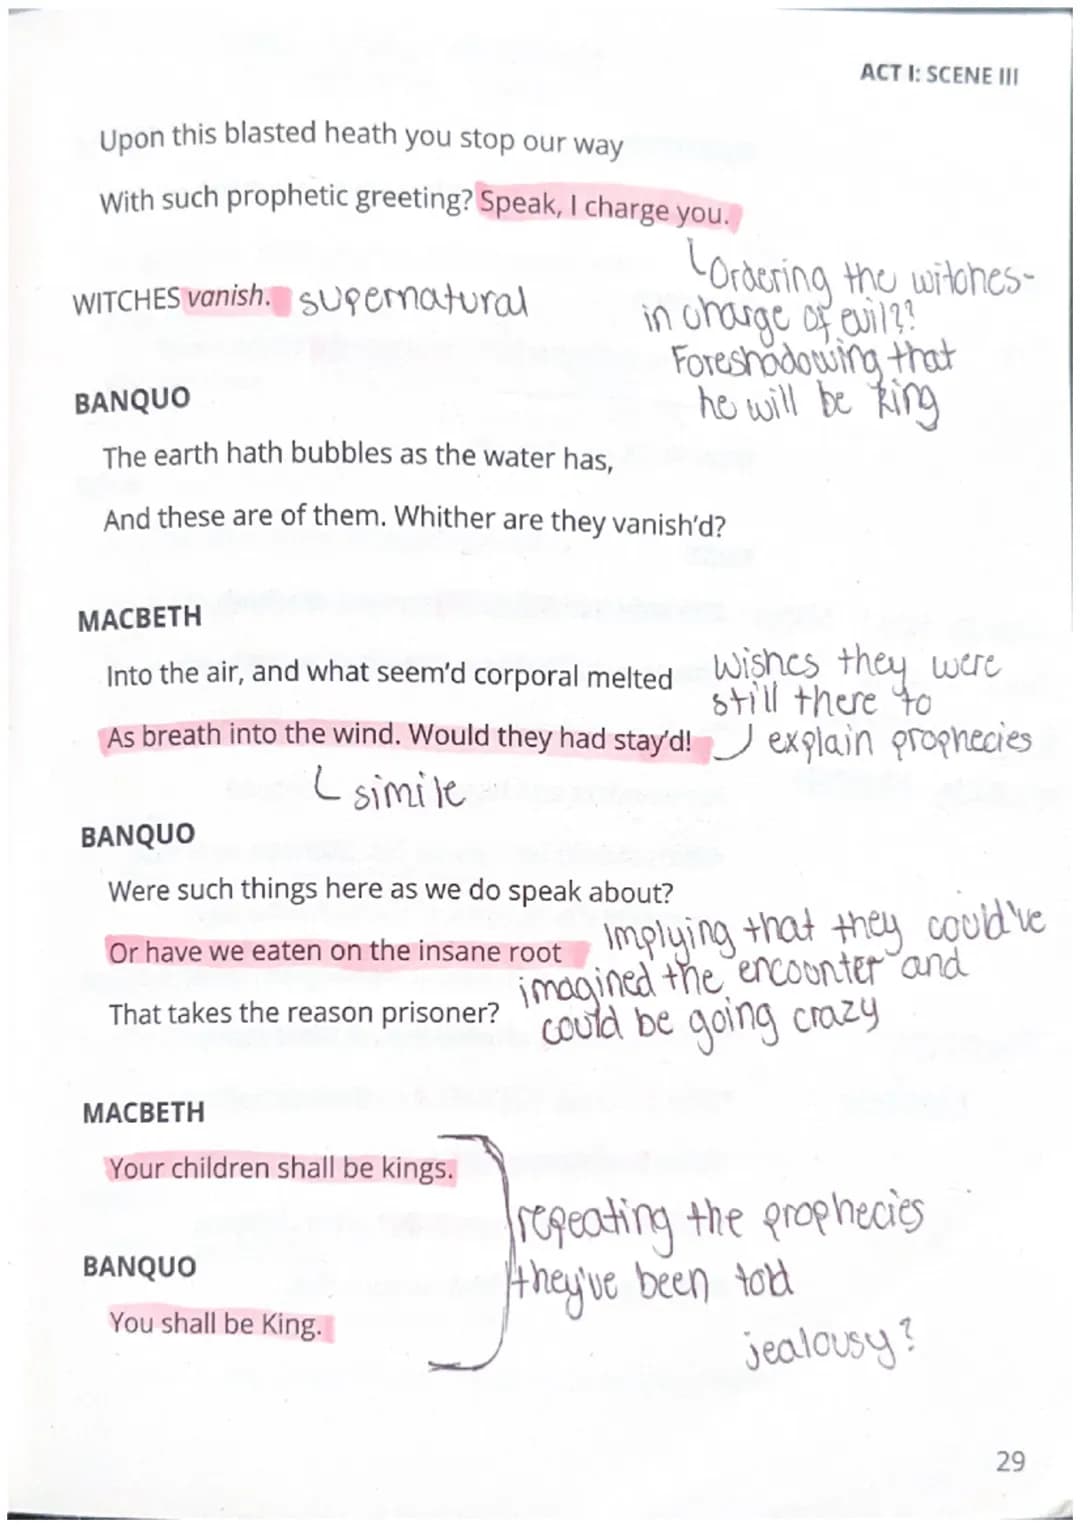 ACT I: SCENE III
Upon this blasted heath you stop our way
With such prophetic greeting? Speak, I charge you.
Ordering the witches-
in charge of evil??
Foreshadowing that
he will be king
WITCHES vanish. supernatural
BANQUO
The earth hath bubbles as the water has,
And these are of them. Whither are they vanish'd?
MACBETH
Into the air, and what seem'd corporal melted
As breath into the wind. Would they had stay'd!
Wishes they were
still there to
explain prophecies
simile
BANQUO
Were such things here as we do speak about?
Or have we eaten on the insane root
That takes the reason prisoner?
Implying that they could've
imagined the encounter and
could be going crazy
MACBETH
Your children shall be kings.
BANQUO
You shall be King.
repeating the prophecies
they've been told
jealousy?
29